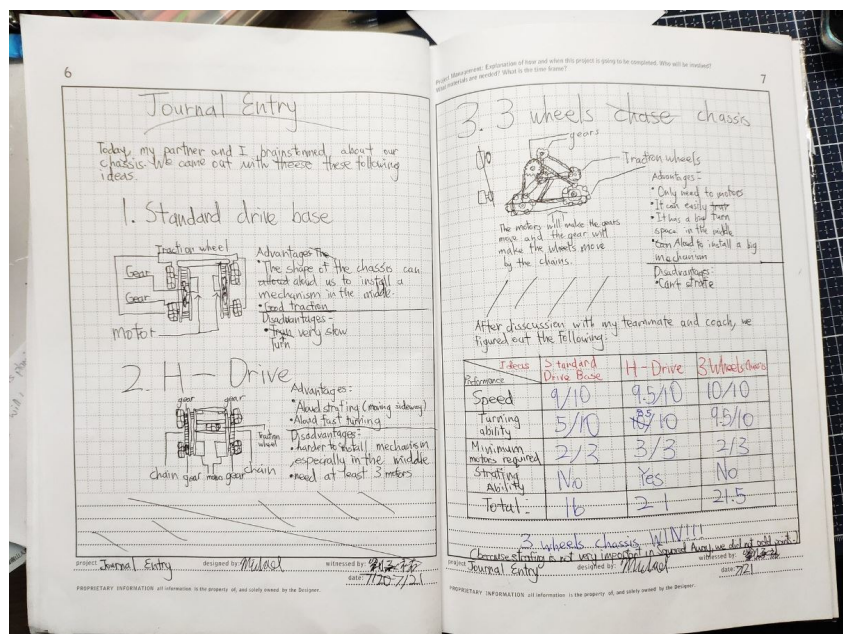 6
Journal Entry
Today, my partner and I brainstormed about our
chassis. We came out with theese these following
ideas.
1. Standard drive base
Traction wheel
Gear
Gear
motor
Advantages
•The shape of the chassis can
aloud us to install a
mechanism in the middle
•Good traction
Disadvantages-
•Trun very slow
Turn
2. H-Drive
gear gear
Traction
wheel
chain gear motor gear chain
Advantages:
•Aloud strafing (moving sideway)
•Aloud fast turning
Disadvantages:
•harder to install mechanism
especially in the middle
•need at least 3 motors
project Journal Entry designed by: Michael witnessed by:
date: 7/20-7/21
PROPRIETARY INFORMATION all information is the property of, and solely owned by the Designer.
Project Management: Explanation of how and when this project is going to be completed. Who will be involved?
What materials are needed? What is the time frame?
7
3. 3 wheels chase chassis
gears
Traction wheels
The motors will make the gears
move and the gear will
make the wheels move
by the chains.
Advantages-
•Only need to motors
•It can easily trun
•It has a big turn
space in the middle
•Can Aloud to install a big
mechanism
Disadvantages:
•Can't strafe
After disscussion with my teammate and coach, we
figured out the following:
Ideas Standard H-Drive 3 Wheels Chassis
Performance Drive Base
Speed 9/10 9.5/10 10/10
Turning 5/10 8.5/10 9.5/10
ability
Minimum 2/3 3/3 2/3
motors required
Strafing No Yes No
Ability
Total- 16 21 21.5
3. wheels chassis WIN!!!
(because strafing is not very important in Squared Away, we did not add point.)
project Journal Entry designed by: Michael witnessed by:
date: 7/21
PROPRIETARY INFORMATION all information is the property of, and solely owned by the Designer.